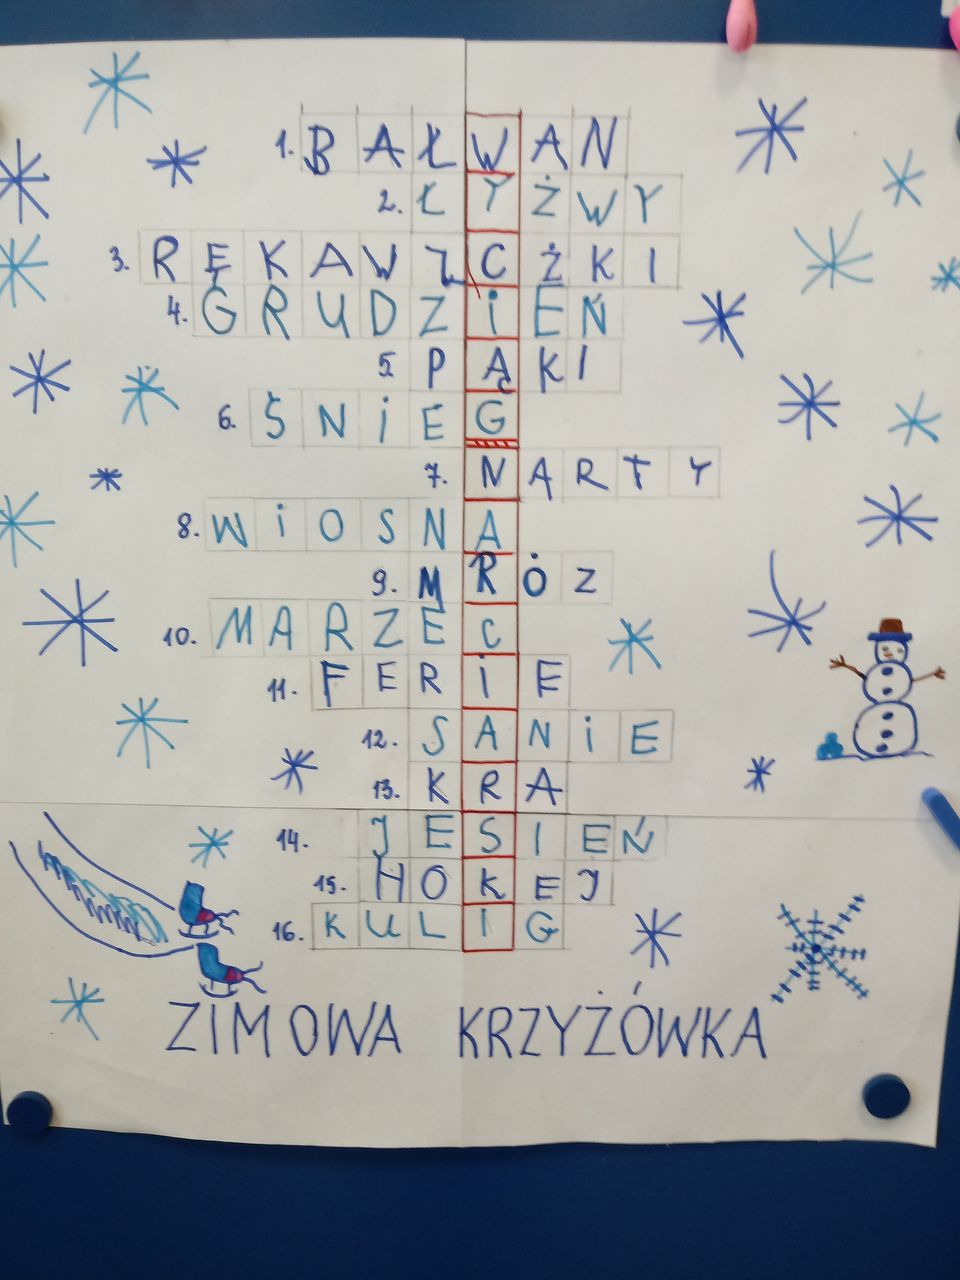 1. BAŁWAN
2. ŁYŻWY
3. RĘKAWICŻKI
4. GRUDZIEŃ
5. PĄKI
6. ŚNIEG
7. NARTY
8. WIOSNA
9. MRÓZ
10. MARZEC
11. FERIE
12. SANIE
13. KRA
14. JESIEŃ
15. HOKEJ
16. KULIG
ZIMOWA KRZYŻÓWKA